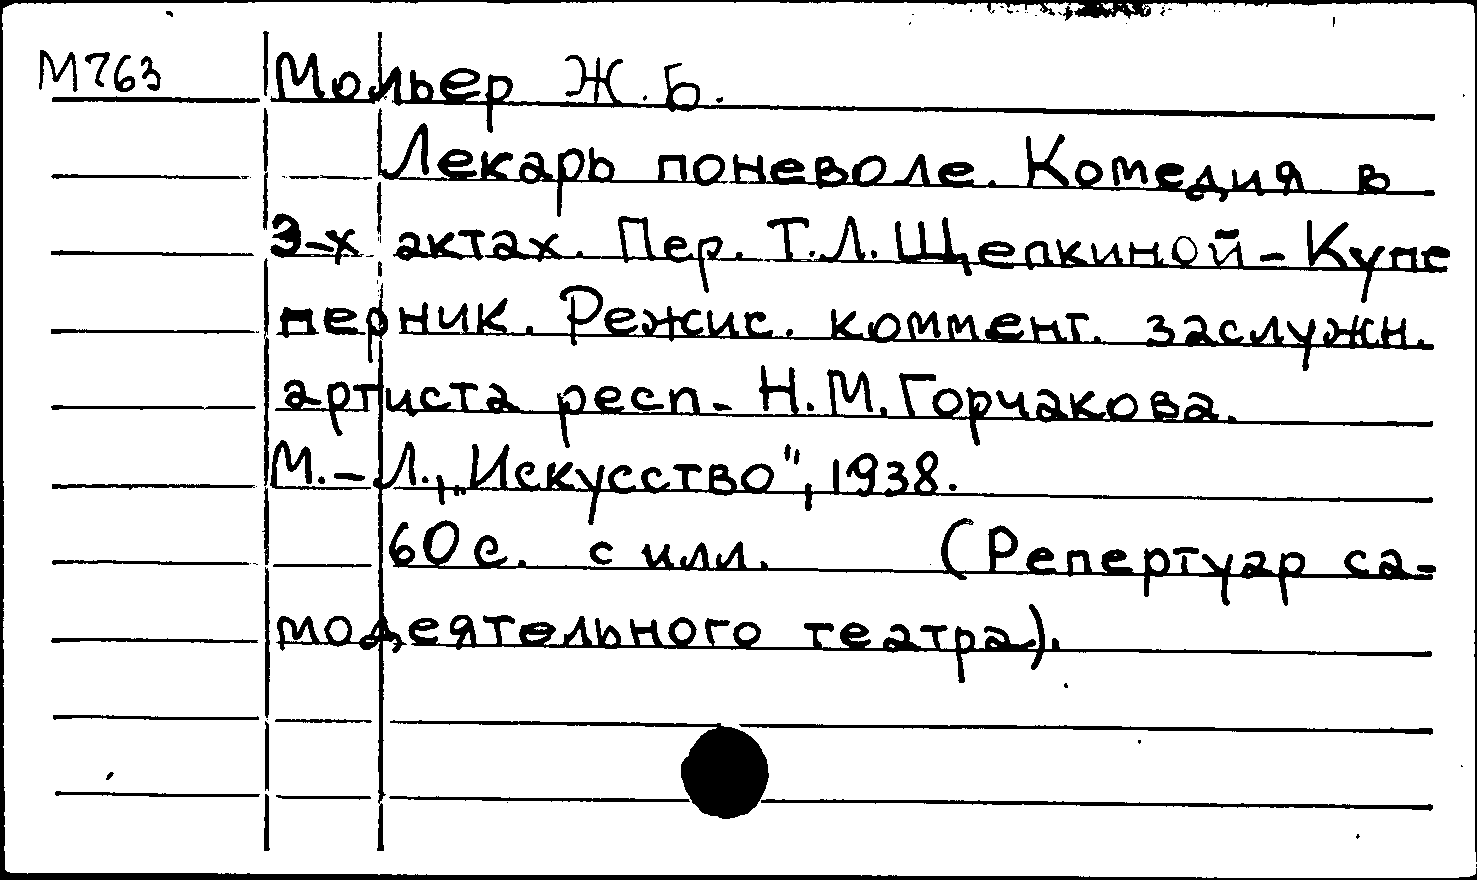 М763 Мольер Ж.Б.
Лекарь поневоле. Комедия в
3-х актах. Пер. Т.Л. Щепкиной-Купе
перник. Режис. коммент. заслужн.
артиста респ. Н.М. Горчакова.
М.-Л., „Искусство", 1938.
60 с. с илл. (Репертуар са-
модеятельного театра).